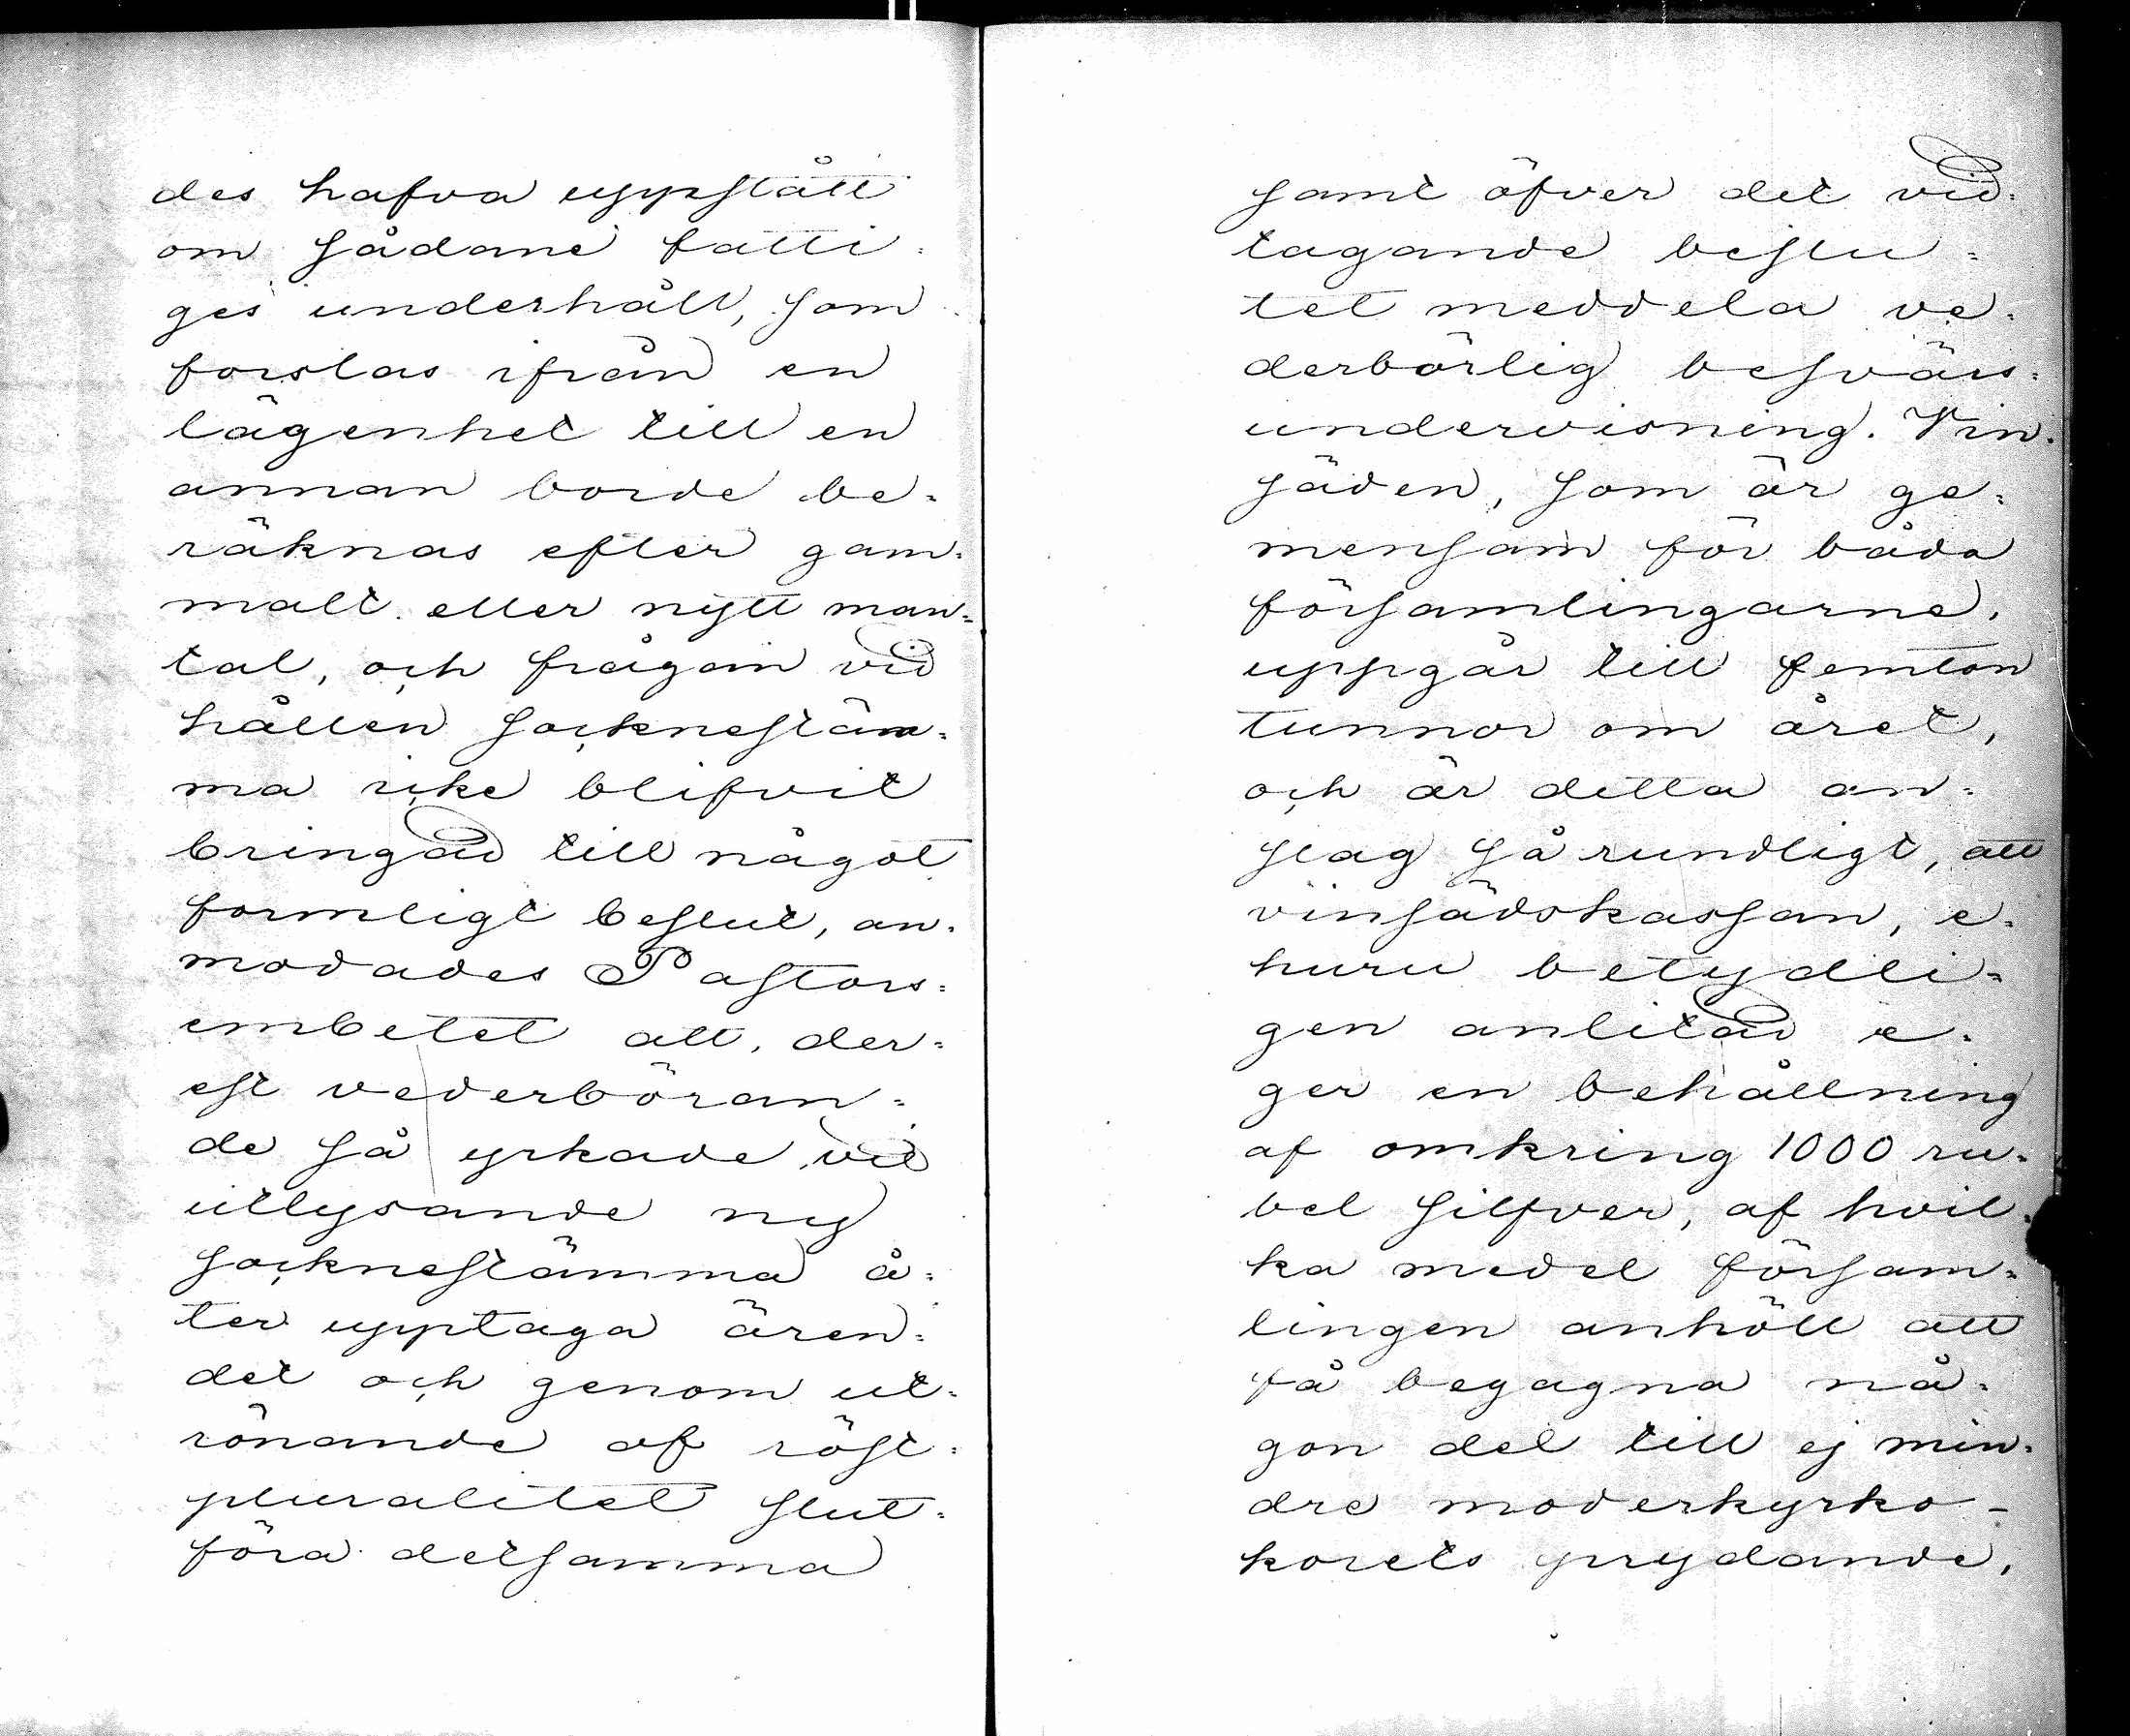 des hafva uppstått
om sådane fatti=
ges underhåll, som
forslas ifrån en
lägenhet till en
annan borde be=
räknas efter gam=
malt eller nytt man=
tal, och frågan vid
hållen sockneståm=
ma icke blifvit
bringad till något
formligt beslut, an=
modades Pastors=
embetet att, der=
est vederböran=
de så yrkade, vid
utlysande ny
socknestämma å=
ter upptaga ären=
det och genom ut=
rönande af röst=
pluralitet slut=
föra detsamma
samt öfver det vid=
tagande beslu=
tet meddela ve=
derbörlig besvärs=
undervisning. Vin=
säden, som är ge=
mensam för båda
församlingarne,
uppgår till femton
tunnor om året,
och är detta an=
slag så rundligt, att
vinsädskassan, e=
huru betydli=
gen anlitad e=
ger en behållning
af omkring 1000 ru=
bel silfver, af hvil=
ka medel försam=
lingen anhöll att
få begagna nå=
gon del till ej min=
dre moderkyrko-
korets prydande,